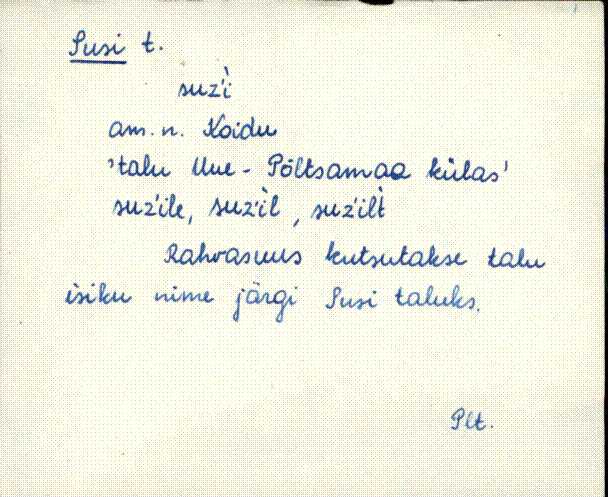 Susi t.
suz'ì
am. n. Koidu
'talu Uue-Põltsamaa külas'
suz'ile, suz'ìl, suz'ilt̀
Rahvasuus kutsutakse talu
isiku nime järgi Susi taluks.
Plt.